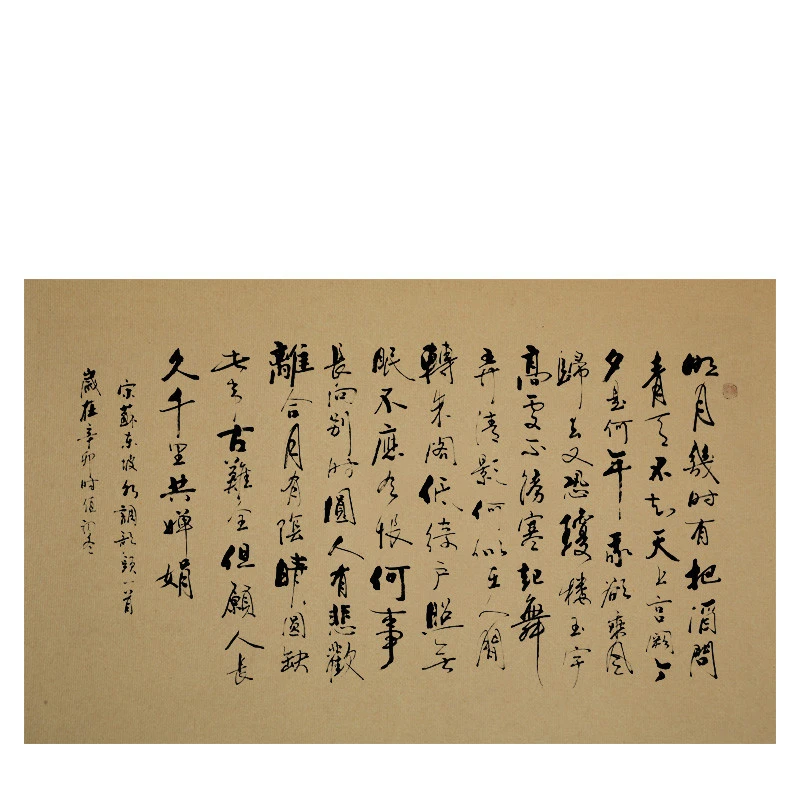 明月幾时有把酒問
青天不知天上宫闕今
夕是何年我欲乘风
歸去又恐瓊楼玉宇
高處不勝寒起舞
弄清影何似在人間
轉朱阁低綺户照無
眠不應有恨何事
長向别时圓人有悲歡
離合月有陰晴圆缺
此事古難全但願人長
久千里共嬋娟
宋蘇东坡水調歌頭一首
歲在辛卯时值